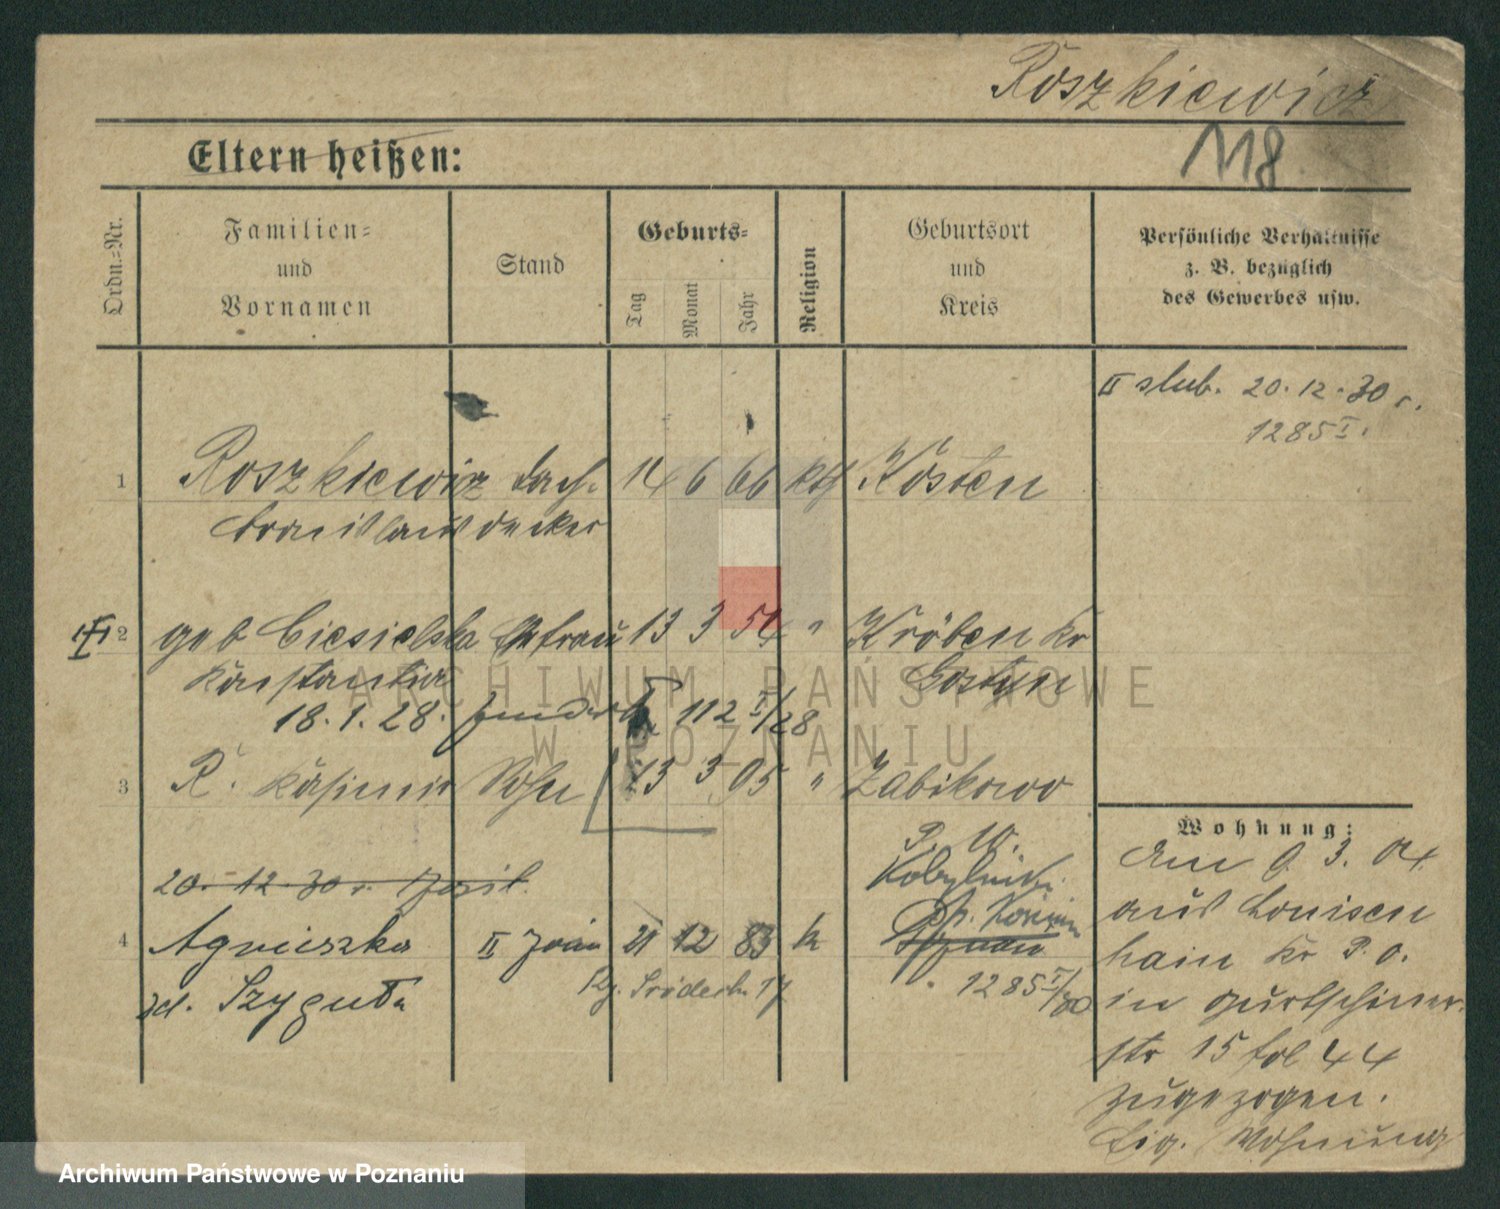 Roszkiewicz
118
Eltern heißen:
Ordn.-Nr.
Familien-
und
Vornamen
Stand
Geburts-
Tag
Monat
Jahr
Religion
Geburtsort
und
Kreis
Persönliche Verhältnisse
z. B. bezüglich
des Gewerbes usw.
II slub. 20.12.30 r.
1285 I.
1 Roszkiewicz Dach- 14 6 66 kth Kosten
decker
2 geb Ciesielska Ehefrau 13 3 54 " Kröben Kr
Konstantia Gostyn
18.1.28. 112 I/28
3 R. Kasimir Sohn 13 3 95 " Zabikowo
P. W.
20. 12. 30 r.
4 Agnieszka II żona 21 12 83 k
zd. Szyguła
1285 I/30
Wohnung:
Am 9. 3. 04
aus Louisen
hain Kr P. O.
in Gurtschiner-
str 15 fol 44
zugezogen.
Eig. Wohnung
ARCHIWUM PAŃSTWOWE
W POZNANIU
Archiwum Państwowe w Poznaniu